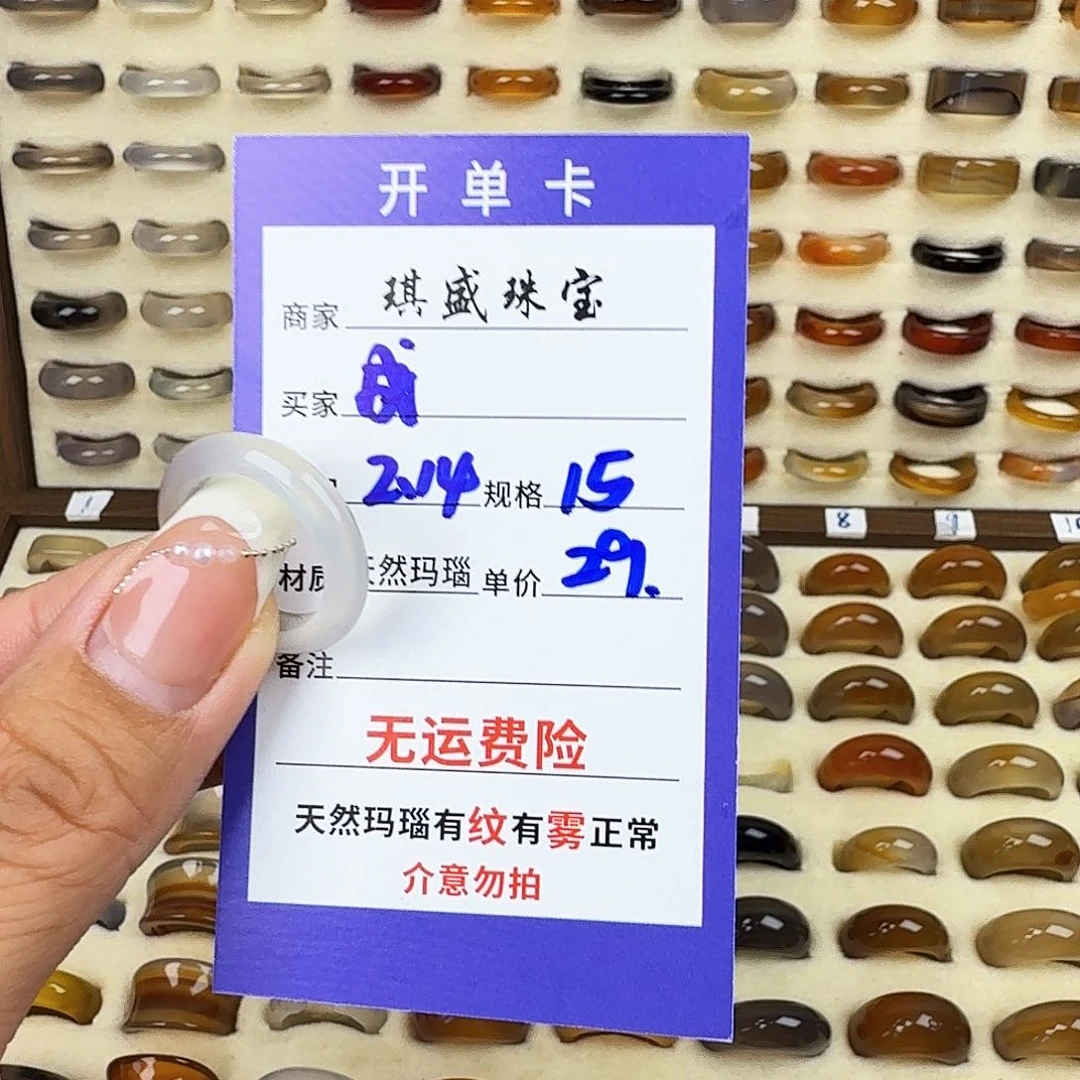 开单卡
商家 琪盛珠宝
买家
2.14 规格 15
材质 天然玛瑙 单价 29.
备注
无运费险
天然玛瑙有纹有雾正常
介意勿拍
8
9
10